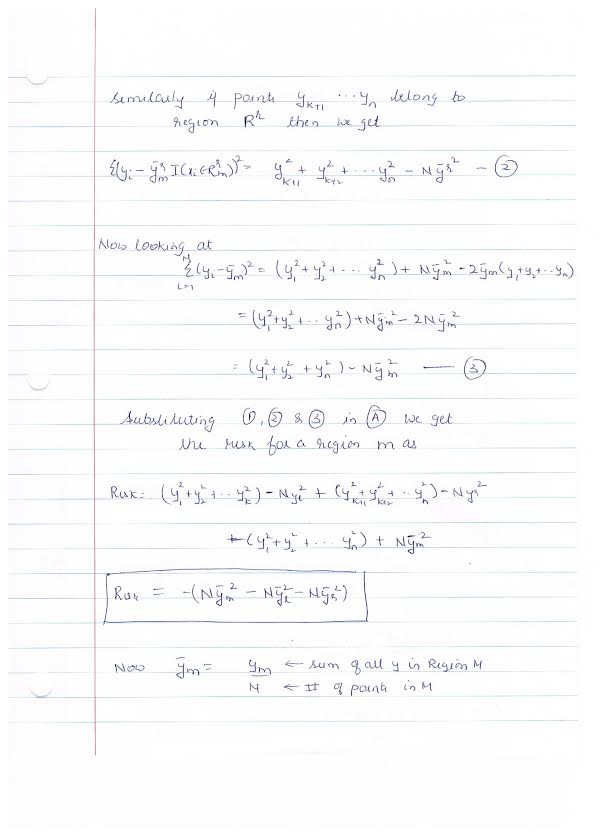 Similarly if points y_{k+1} ... y_n belong to
region R^r then we get
Σ(y_i - ȳ_m^r I(x_i ∈ R_m^r))² = y²_{k+1} + y²_{k+2} + ... y²_n - Nȳ^{r2} - ②
Now looking at
Σ_{i=1}^{N} (y_i - ȳ_m)² = (y_1² + y_2² + ... y_n²) + Nȳ_m² - 2ȳ_m(y_1 + y_2 + ... y_n)
= (y_1² + y_2² + .. y_n²) + Nȳ_m² - 2Nȳ_m²
= (y_1² + y_2² + y_n²) - Nȳ_m² — ③
Substituting ①, ② & ③ in Ⓐ we get
the risk for a region m as
Risk = (y_1² + y_2² + .. y_k²) - Ny_l² + (y²_{k+1} + y²_{k+2} + .. y_n²) - Ny_r²
-(y_1² + y_2² + ... y_n²) + Nȳ_m²
Risk = -(Nȳ_m² - Nȳ_l² - Nȳ_r²)
Now ȳ_m = y_m ← sum of all y in Region M
N ← # of points in M